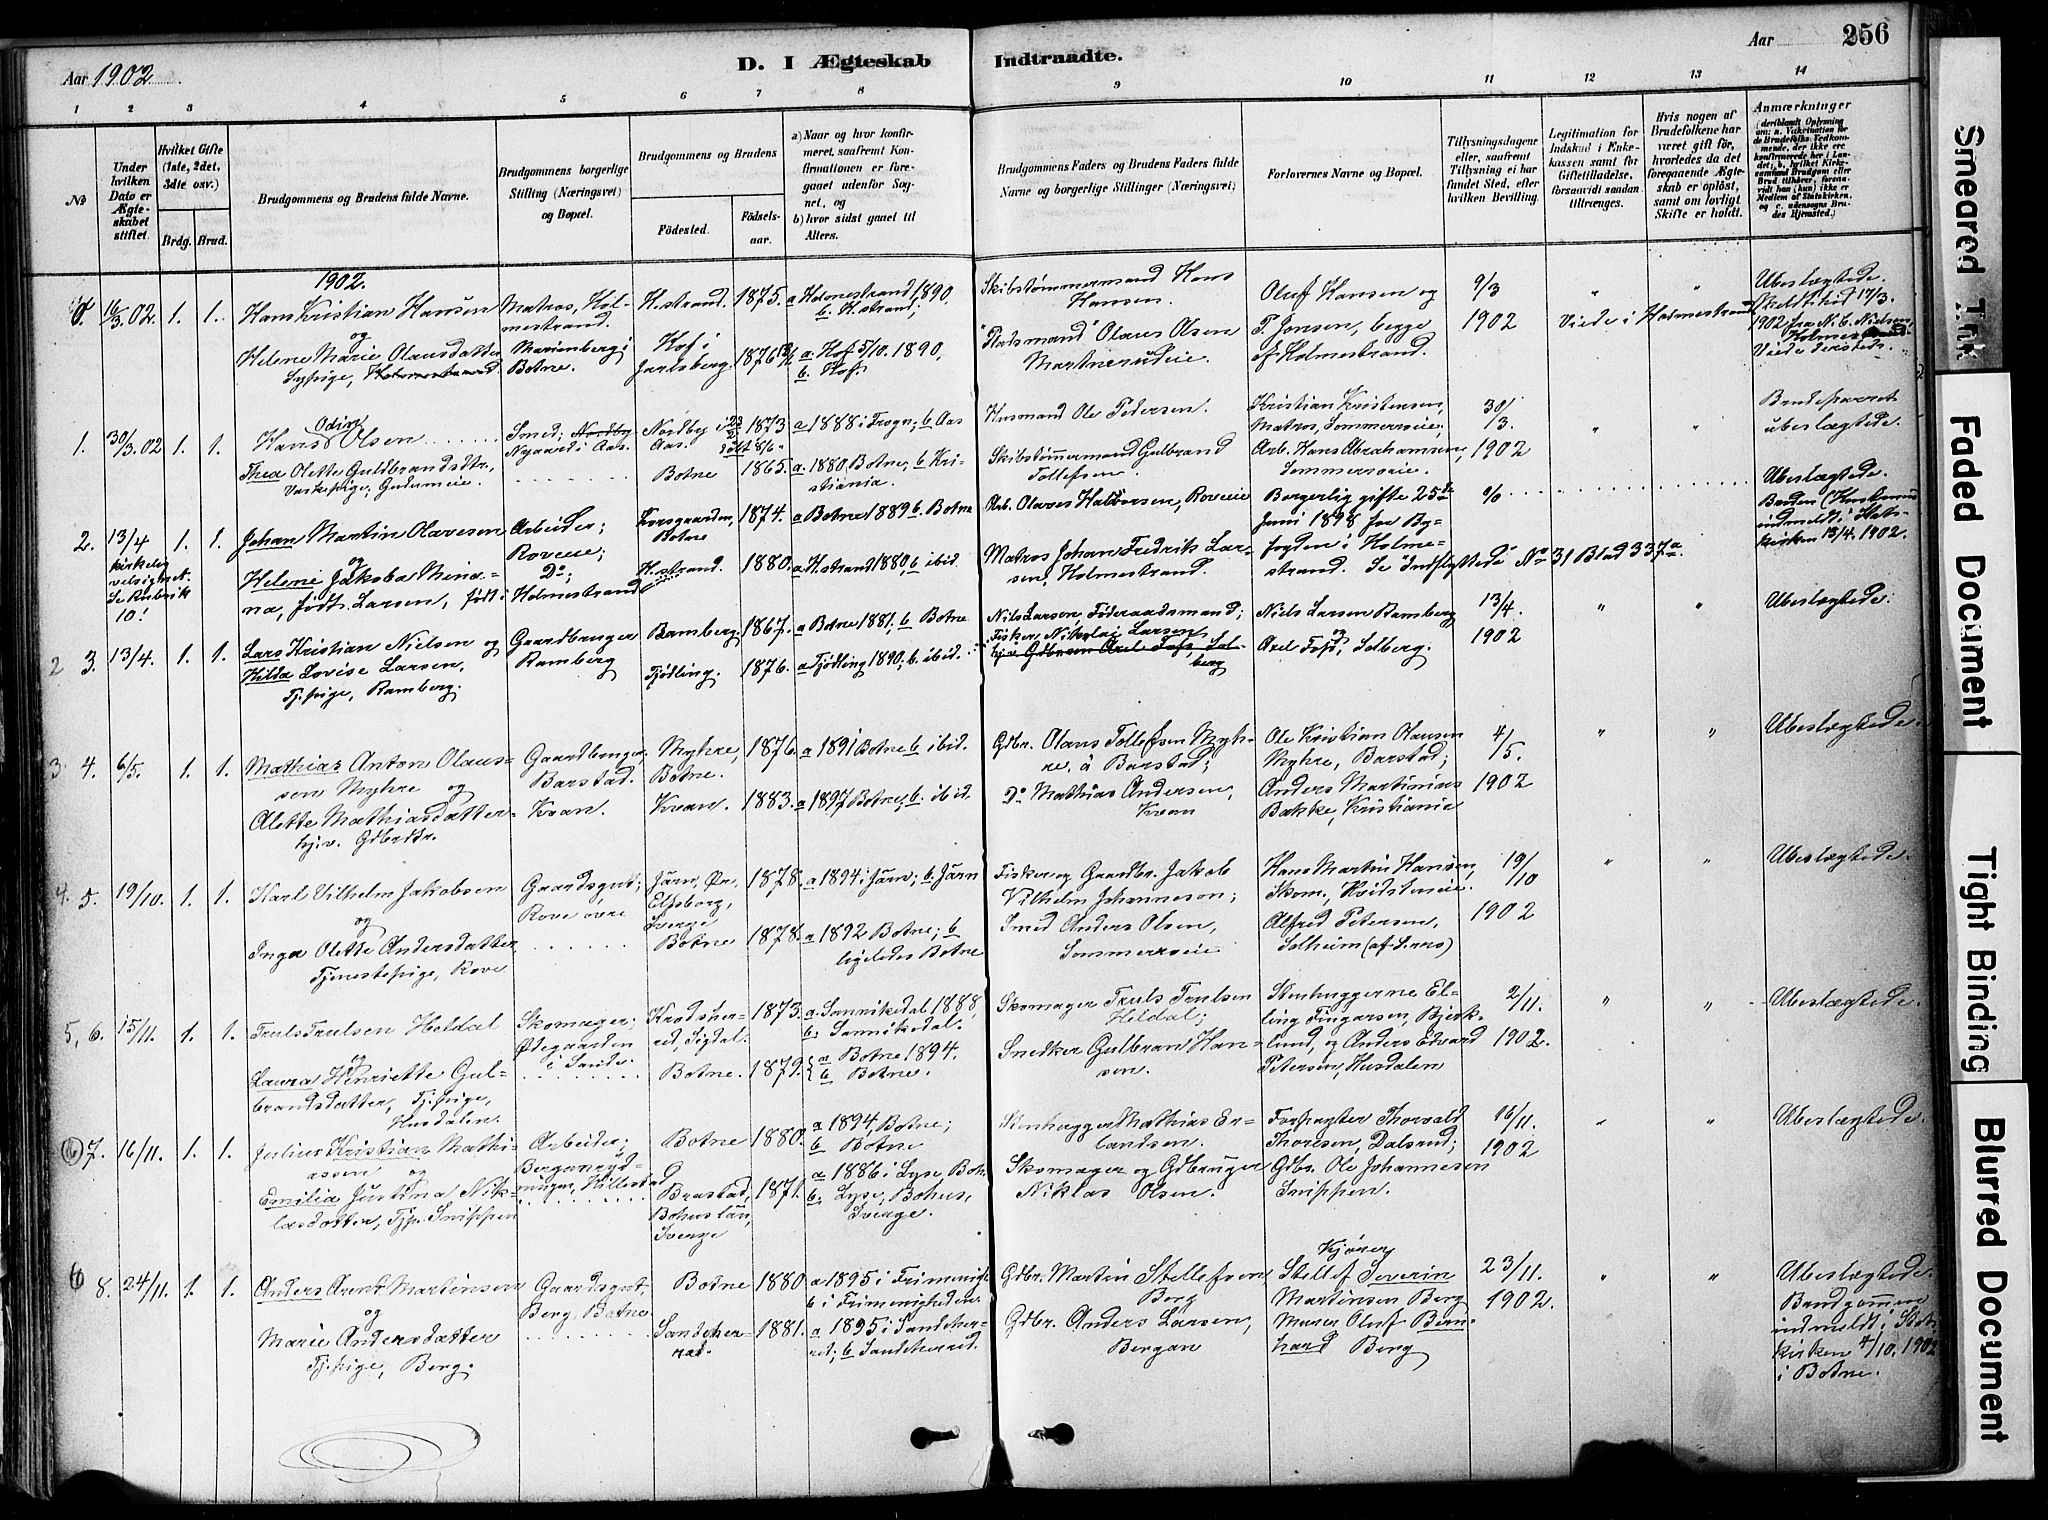 Aar 1902
D. I Ægteskab
Indtraadte.
Aar
256
1 2 3 4 5 6 7 8 9 10 11 12 13 14
No
Under hvilken Dato er Ægteskabet stiftet.
Hvilket Gifte (1ste, 2det, 3die osv.)
Brdg. Brud.
Brudgommens og Brudens fulde Navne.
Brudgommens borgerlige Stilling (Næringsvei) og Bopæl.
Brudgommens og Brudens
Fødested.
Fødselsaar.
a) Naar og hvor konfirmeret, saafremt Konfirmationen er foregaaet udenfor Sognet, og
b) hvor sidst gaaet til Alters.
Brudgommens Faders og Brudens Faders fulde Navne og borgerlige Stillinger (Næringsvei)
Forlovernes Navne og Bopæl.
Tillysningsdagene eller, saafremt Tillysning ei har fundet Sted, efter hvilken Bevilling.
Legitimation for Indskud i Enkekassen samt for Giftetilladelse, forsaavidt sandan tiltrænges.
Hvis nogen af Brudefolkene har været gift før, hvorledes da det foregaaende Ægteskab er opløst, samt om lovligt Skifte er holdt.
Anmærkninger
1902.
16/3.02. 1. 1.
Hans Kristian Hansen
og
Helene Marie Olausdatter
Sypige, Holmestrand
Matros, Holmestrand.
Marienberg i Botne.
H.strand. 1875. a Holmestrand 1890, b. H.strand;
Hof i Jarlsberg. 1876 a. Hof 5/10. 1890, b. Hof.
Skibstømmermand Hans Hansen.
"Pladsmand" Olaus Olsen
Oluf Hansen og
T. Jonsen, begge
af Holmestrand.
9/3
1902
Viede i Holmestrand
Ubeslægtede.
1. 30/3.02 1. 1.
Hans Odin Olsen
Thea Olette Guldbrandsdtr.
Smed; Nordby
Nygaard i Aas.
Nordby i Aas. 1873
Botne 1865.
a 1888 i Frogn; b Aas
a. 1880 Botne; b Kristiania.
Husmand Ole Pedersen.
Skibstømmermand Gulbrand Tollefsen.
Kristian Kristensen,
Matros, Sommerroeie;
Arb. Hans Abrahamsen,
Sommerroeie.
30/3.
1902
Brudeparret
ubeslægtede.
2. 13/4 1. 1.
kirkelig
velsignet.
Se Rubrik
10!
Johan Martin Olavesen
og
Helene Jakoba Mina
na, født Larsen, født i
Arbeider;
Roveie;
Do;
Holmestrand
Korsgaarden, Botne 1874.
H.strand. 1880.
a Botne 1889 b. Botne
a. H.strand 1880, b ibid
Arb. Olaves Halvorsen, Roveie
Matros Johan Fredrik Larsen, Holmestrand.
Borgerlig gifte 25de
Juni 1898 for Byfogden i Holmestrand. Se "Indflyttede" No 31 Blad 337a.
%
Ubeslægtede.
Bruden
indmeldt i Statskirken 13/4. 1902.
2 3. 13/4. 1. 1.
Lars Kristian Nielsen og
Hilda Lovise Larsen,
Tj.pige, Ramberg.
Gaardbruger
Ramberg
Ramberg. 1867. a Botne 1881, b Botne
Tjødling. 1876. a Tjødling 1890; b. ibid.
Nils Larsen, Føderaadsmand;
Fisker, Nikolai Larsen
Niels Larsen Ramberg
og
Axel Foss, Solberg.
13/4.
1902
Ubeslægtede.
3 4. 6/5. 1. 1.
Mathias Anton Olaussen Myhre og
Alette Mathiasdatter
hj.v. Gdbrdtr.
Gaardbruger,
Barstad.
Kvan.
Myhre, Botne. 1876. a 1891 Botne b ibid.
Kvan. 1883. a 1897 Botne, b. ibid.
Gdbr. Olaus Tollefsen Myhre, å Barstad;
Do Mathias Andersen, Kvan
Ole Kristian Olausen
Myhre, Barstad;
Anders Martinius
Bakke, Kristiania
4/5.
1902
Ubeslægtede.
4. 5. 19/10. 1. 1.
Karl Vilhelm Jakobsen
og
Inga Olette Andersdatter
Tjenestepige, Rove
Gaardsgut;
Rove øvre
Järn, Ør, Elfsborg, Sverge 1878. a 1894 i Järn; b. Järn
Botne 1878. a 1892 Botne; b ligeledes Botne
Fisker og Gaardbr. Jakob
Vilhelm Johanneson;
Smed Anders Olsen,
Sommerroeie
Hans Martin Hansen,
Skom., Hvidsteneie.
Alfred Petersen,
Solheim
19/10
1902
Ubeslægtede.
5, 6. 15/11. 1. 1.
Truls Trulsen Heldal
og
Laura Henriette Gulbrandsdatter, Tj.pige,
Husdalen.
Skomager;
Ødegaarden
i Sande.
Krødsherred, Sigdal. 1873. a. Sannikedal 1888, b. Sannikedal.
Botne. 1879. a Botne 1894. b Botne.
Skomager Truls Trulsen
Heldal;
Snedker Gulbran Hansen.
Stenhuggerne Elling Fingarsen, Bjerklund, og Anders Edvard
Petersen, Husdalen
2/11.
1902.
Ubeslægtede.
(6) 7. 16/11. 1. 1.
Julius Kristian Mathiassen og
Emilia Justina Niklasdotter, Tjp. Snippen
Arbeider;
Hillestad
Botne 1880. a 1894, Botne; b Botne
Brastad, Bohuslän, Sverge 1871. a 1886 i Lyse, Boh. b. Lyse, Bohus, Sverge.
Stenhugger Mathias Erlandsen.
Skomager og Gdbruger
Niklas Olsen.
Forpagter Thorvald
Thoresen, Dalsrud;
Gdbr. Ole Johannesen
Snippen.
16/11.
1902
Ubeslægtede.
6 8. 24/11. 1. 1.
Anders Arent Martinsen
og
Marie Andersdatter
Tj.pige, Berg.
Gaardsgut,
Berg, Botne
Botne 1880 a 1895 i Frimenigh. b i Frimenigheden.
Sandeherred. 1881. a 1895 i Sandeherred; b Sandeherred.
Gdbr. Martin Stellefsen
Berg
Gdbr. Anders Larsen,
Bergan
Kjører
Stellef Severin
Martinsen Berg
Murer Oluf Bernhard Berg
23/11.
1902.
Ubeslægtede.
Brudgommen
indmeldt i Statskirken 4/10. 1902
i Botne.
Smeared Ink
Faded Document
Tight Binding
Blurred Document